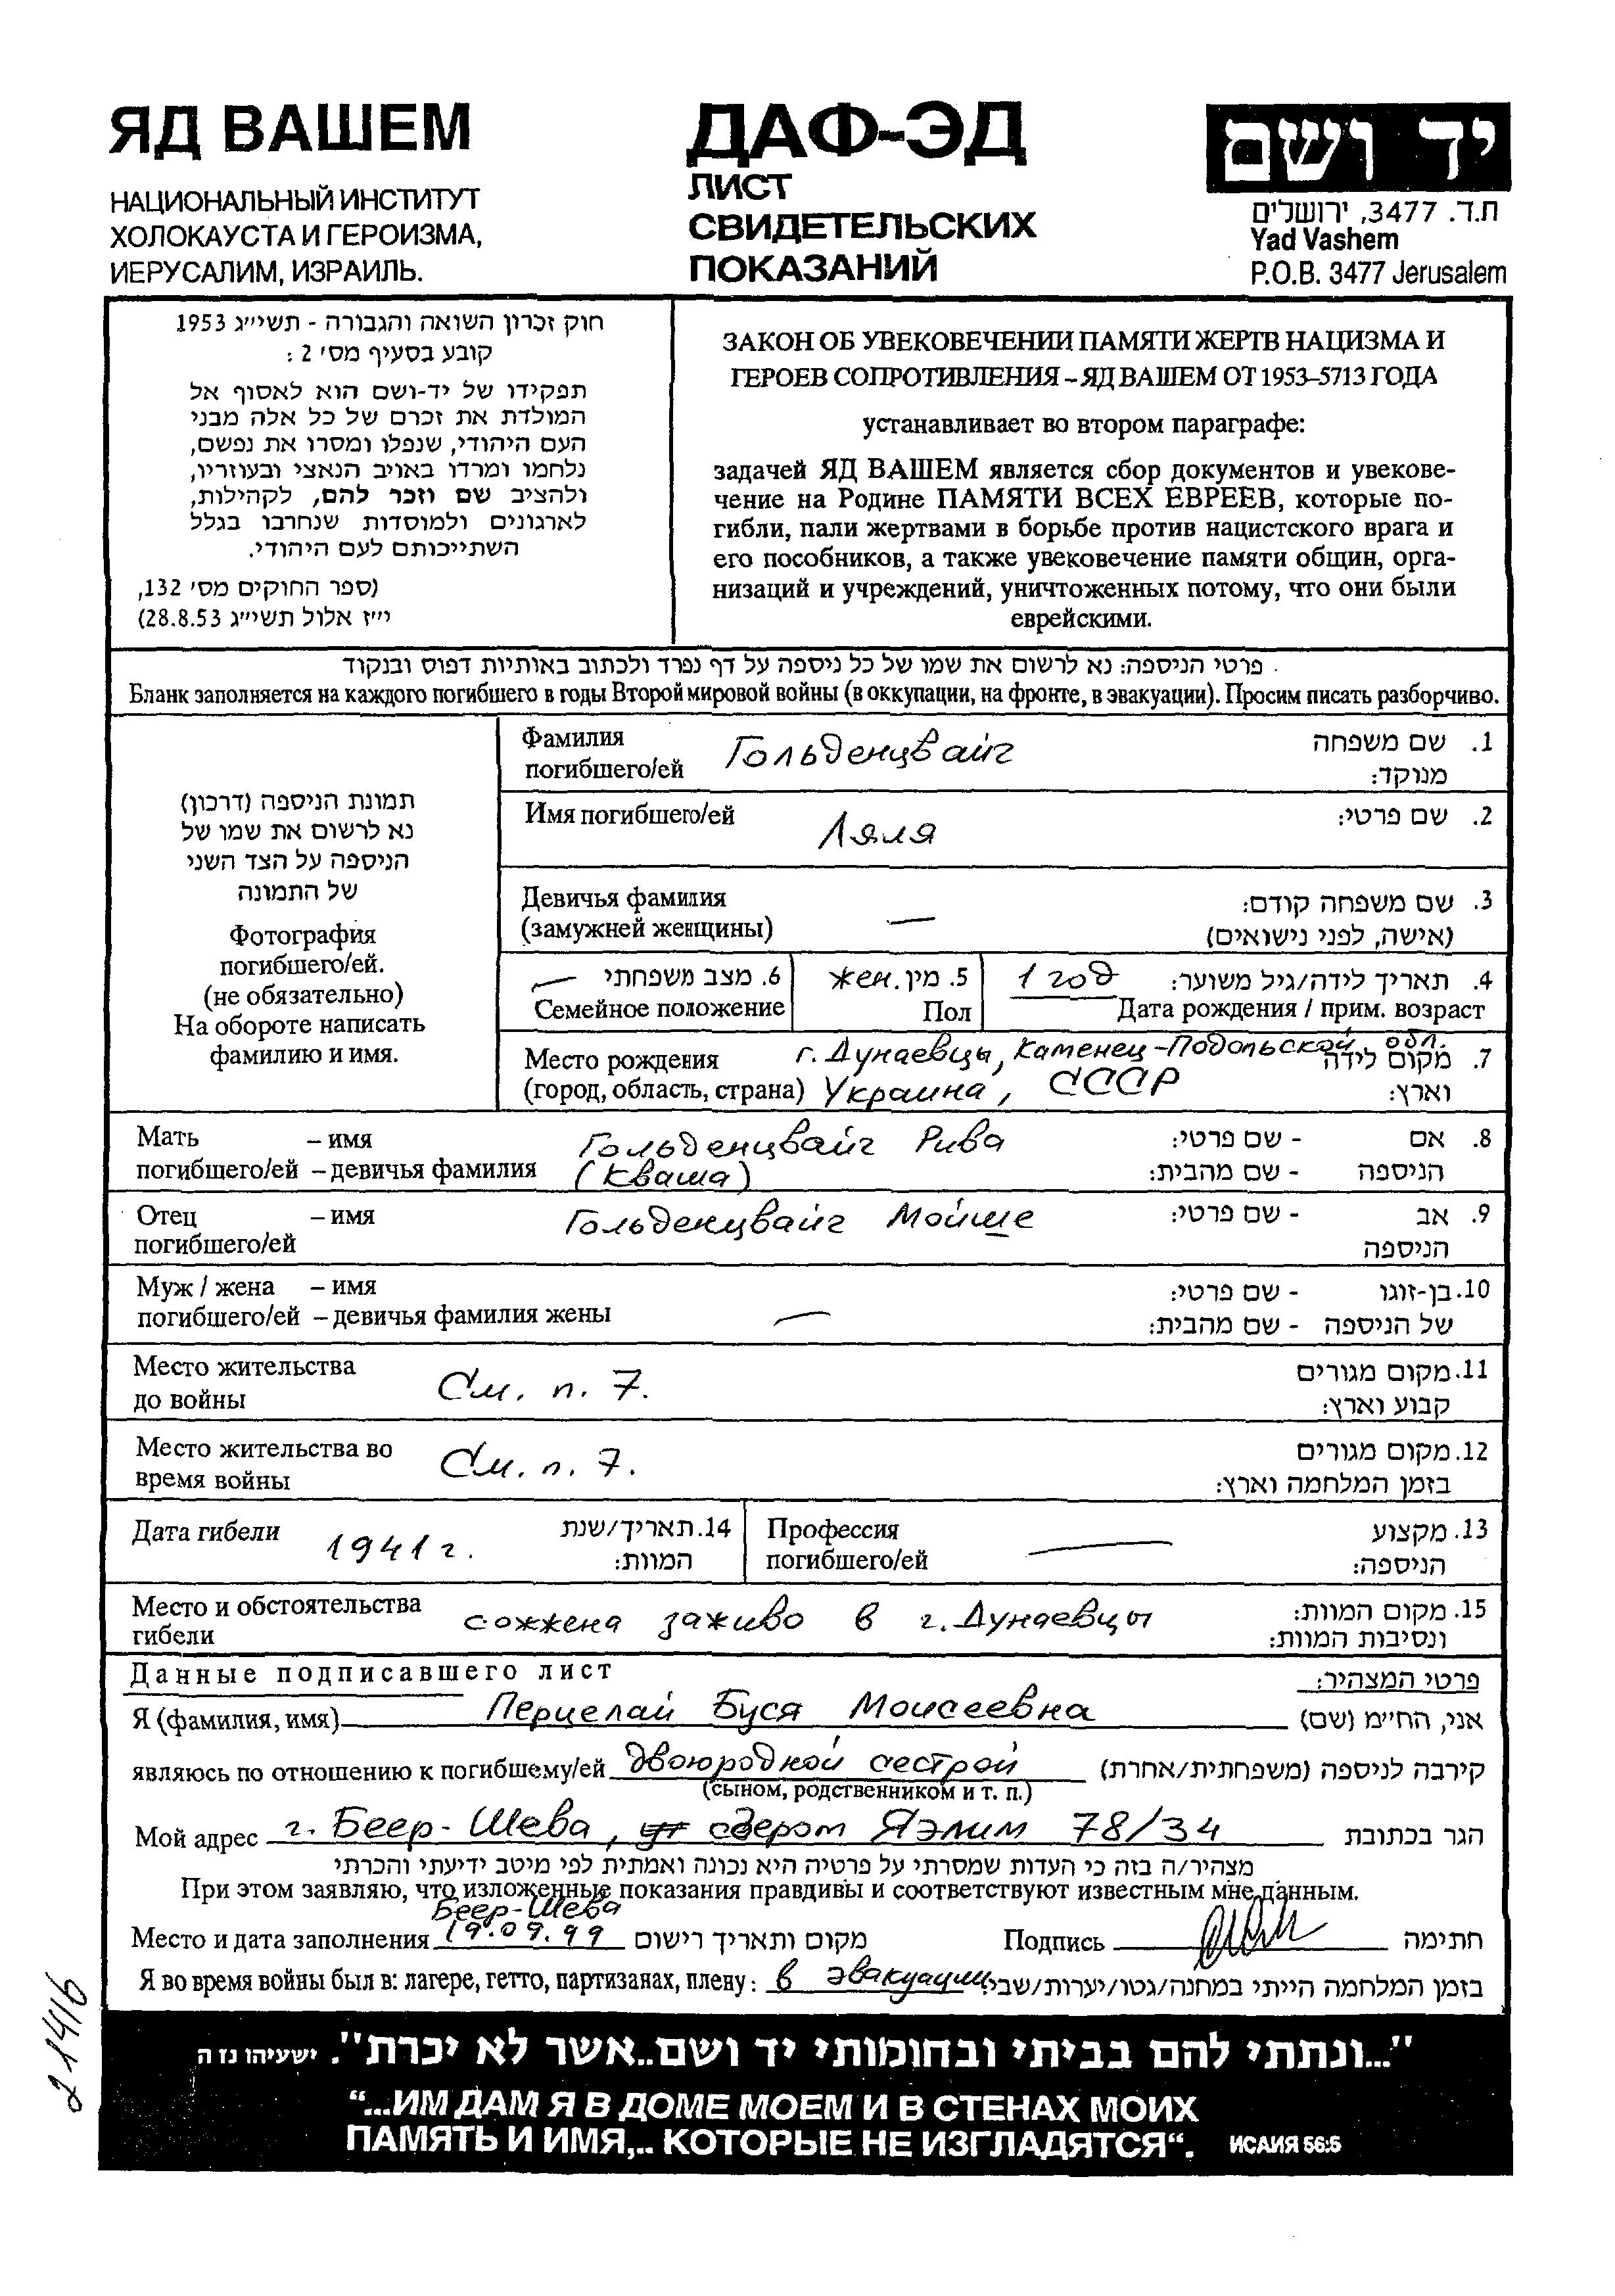 ЯД ВАШЕМ
НАЦИОНАЛЬНЫЙ ИНСТИТУТ
ХОЛОКАУСТА И ГЕРОИЗМА,
ИЕРУСАЛИМ, ИЗРАИЛЬ.
ДАФ-ЭД
ЛИСТ
СВИДЕТЕЛЬСКИХ
ПОКАЗАНИЙ
יד ושם
ת.ד. 3477, ירושלים
Yad Vashem
P.O.B. 3477 Jerusalem
חוק זכרון השואה והגבורה - תשי״ג 1953
קובע בסעיף מס׳ 2 :
תפקידו של יד-ושם הוא לאסוף אל
המולדת את זכרם של כל אלה מבני
העם היהודי, שנפלו ומסרו את נפשם,
נלחמו ומרדו באויב הנאצי ובעוזריו,
ולהציב שם וזכר להם, לקהילות,
לארגונים ולמוסדות שנחרבו בגלל
השתייכותם לעם היהודי.
(ספר החוקים מס׳ 132,
י״ז אלול תשי״ג 28.8.53)
ЗАКОН ОБ УВЕКОВЕЧЕНИИ ПАМЯТИ ЖЕРТВ НАЦИЗМА И
ГЕРОЕВ СОПРОТИВЛЕНИЯ – ЯД ВАШЕМ ОТ 1953–5713 ГОДА
устанавливает во втором параграфе:
задачей ЯД ВАШЕМ является сбор документов и увекове-
чение на Родине ПАМЯТИ ВСЕХ ЕВРЕЕВ, которые по-
гибли, пали жертвами в борьбе против нацистского врага и
его пособников, а также увековечение памяти общин, орга-
низаций и учреждений, уничтоженных потому, что они были
еврейскими.
פרטי הניספה: נא לרשום את שמו של כל ניספה על דף נפרד ולכתוב באותיות דפוס ובנקוד
Бланк заполняется на каждого погибшего в годы Второй мировой войны (в оккупации, на фронте, в эвакуации). Просим писать разборчиво.
תמונת הניספה (דרכון)
נא לרשום את שמו של
הניספה על הצד השני
של התמונה
Фотография
погибшего/ей.
(не обязательно)
На обороте написать
фамилию и имя.
Фамилия Гольденцвайг 1. שם משפחה
погибшего/ей מנוקד:
Имя погибшего/ей Ляля 2. שם פרטי:
Девичья фамилия 3. שם משפחה קודם:
(замужней женщины) — (אישה, לפני נישואים)
— 6. מצב משפחתי
Семейное положение
жен. 5. מין
Пол
1 год 4. תאריך לידה/גיל משוער:
Дата рождения / прим. возраст
Место рождения г. Дунаевцы, Каменец-Подольской обл. 7. מקום לידה
(город, область, страна) Украина, СССР וארץ:
Мать – имя Гольденцвайг Рива 8. אם - שם פרטי:
погибшего/ей – девичья фамилия (Кваша) הניספה - שם מהבית:
Отец – имя Гольденцвайг Мойше 9. אב - שם פרטי:
погибшего/ей הניספה
Муж / жена – имя 10. בן-זוגו - שם פרטי:
погибшего/ей – девичья фамилия жены — של הניספה - שם מהבית:
Место жительства См. п. 7. 11. מקום מגורים
до войны קבוע וארץ:
Место жительства во См. п. 7. 12. מקום מגורים
время войны בזמן המלחמה וארץ:
Дата гибели 1941 г. 14. תאריך/שנת
המוות:
Профессия — 13. מקצוע
погибшего/ей הניספה:
Место и обстоятельства сожжена заживо в г. Дунаевцы 15. מקום המוות:
гибели ונסיבות המוות:
Данные подписавшего лист פרטי המצהיר:
Я (фамилия, имя) Перцелай Буся Моисеевна אני, החי״מ (שם)
являюсь по отношению к погибшему/ей двоюродной сестрой קירבה לניספה (משפחתית/אחרת)
(сыном, родственником и т. п.)
Мой адрес г. Беер-Шева, сдерот Яэлим 78/34 הגר בכתובת
מצהיר/ה בזה כי העדות שמסרתי על פרטיה היא נכונה ואמתית לפי מיטב ידיעתי והכרתי
При этом заявляю, что изложенные показания правдивы и соответствуют известным мне данным.
Беер-Шева
Место и дата заполнения 19.09.99 מקום ותאריך רישום Подпись חתימה
Я во время войны был в: лагере, гетто, партизанах, плену: в эвакуации בזמן המלחמה הייתי במחנה/גטו/יערות/שבי:
21416
"...ונתתי להם בביתי ובחומותי יד ושם..אשר לא יכרת". ישעיהו נז ה
“...ИМ ДАМ Я В ДОМЕ МОЕМ И В СТЕНАХ МОИХ
ПАМЯТЬ И ИМЯ,.. КОТОРЫЕ НЕ ИЗГЛАДЯТСЯ“. ИСАИЯ 56:5